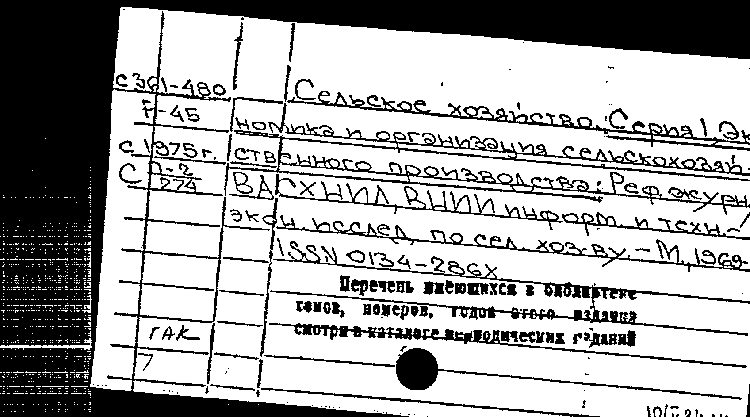 с 361-480
Сельское хозяйство. Серия 1, Эк
F-45
номика и организация сельскохозяй-
с 1975 г.
ственного производства: Реф. журн
С П-2/274
ВАСХНИЛ, ВНИИ информ. и техн.-
экон. исслед. по сел. хоз-ву. - М., 1969-
ISSN 0134-286X
Перечень имеющихся в библиотеке
томов, номеров, годов этого издания
смотри в каталоге периодических изданий
ГАК
7